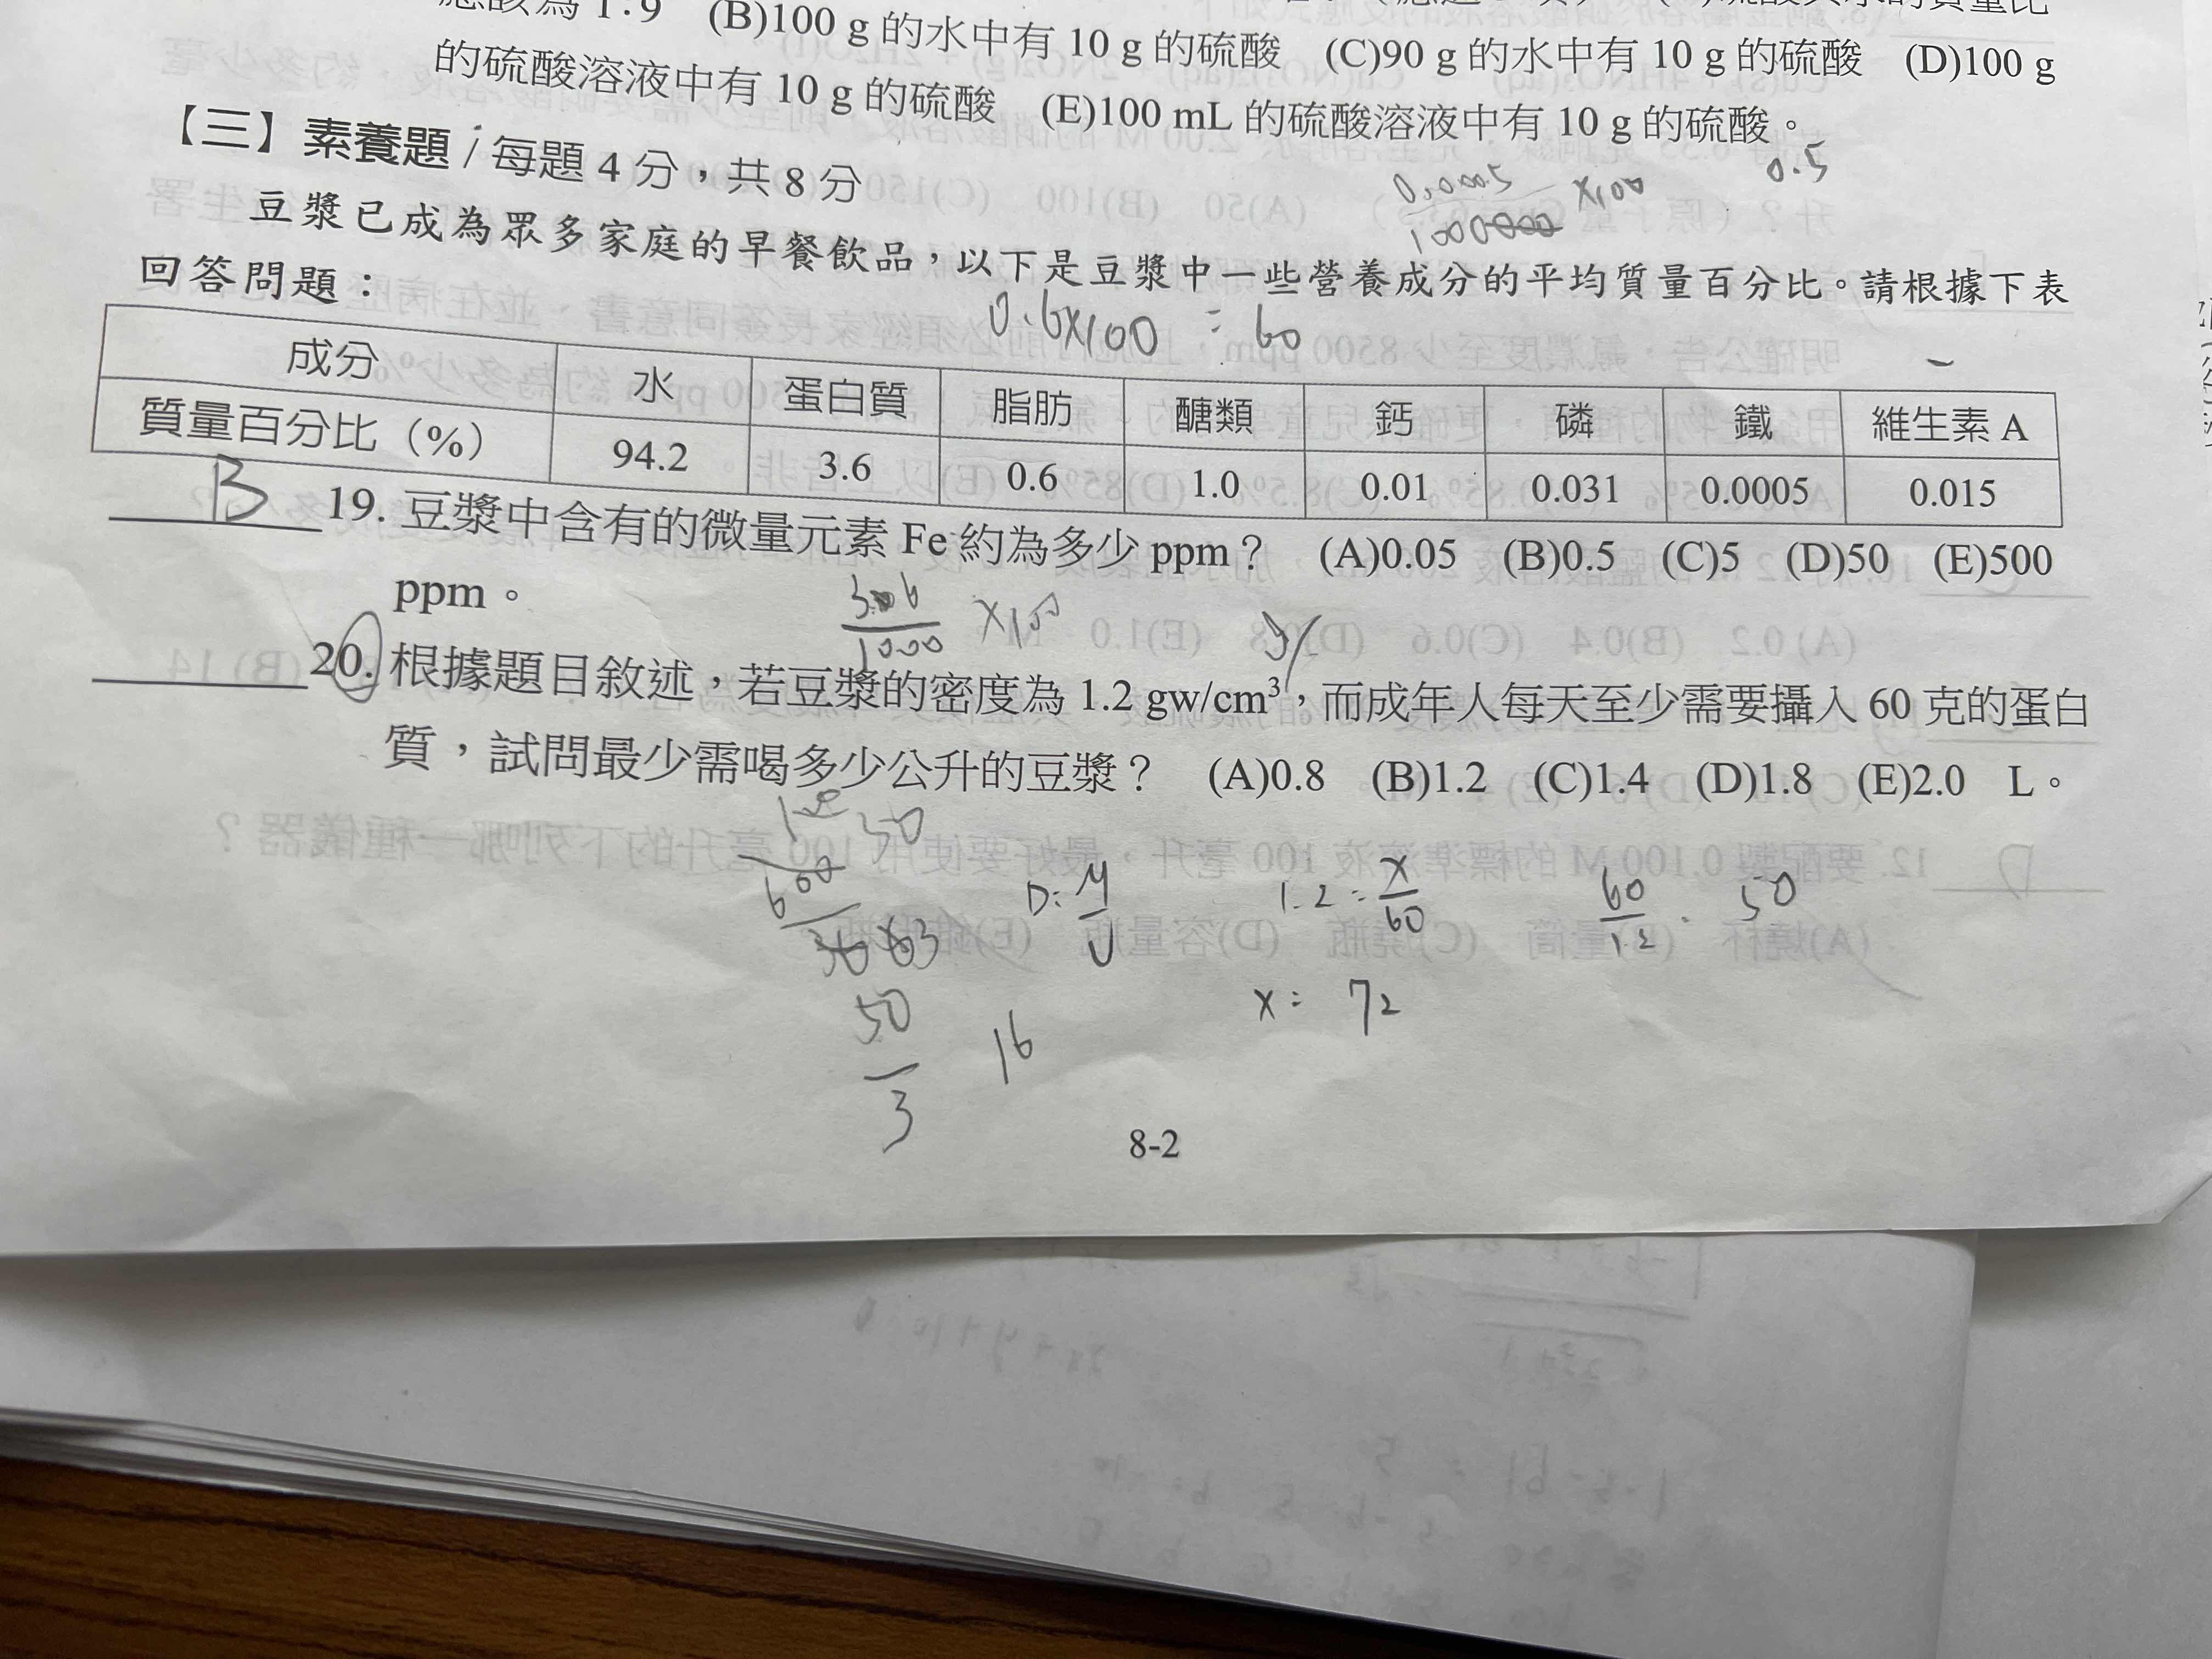 應該為 1:9 (B)100 g 的水中有 10 g 的硫酸 (C)90 g 的水中有 10 g 的硫酸 (D)100 g
的硫酸溶液中有 10 g 的硫酸 (E)100 mL 的硫酸溶液中有 10 g 的硫酸。
【三】素養題/每題 4 分,共 8 分
0.0005 ×100 0.5
1000000
豆漿已成為眾多家庭的早餐飲品,以下是豆漿中一些營養成分的平均質量百分比。請根據下表
回答問題:
0.6×100 = 60
成分 水 蛋白質 脂肪 醣類 鈣 磷 鐵 維生素 A
質量百分比(%) 94.2 3.6 0.6 1.0 0.01 0.031 0.0005 0.015
B 19. 豆漿中含有的微量元素 Fe 約為多少 ppm? (A)0.05 (B)0.5 (C)5 (D)50 (E)500
ppm。
×100
20. 根據題目敘述,若豆漿的密度為 1.2 gw/cm³,而成年人每天至少需要攝入 60 克的蛋白
質,試問最少需喝多少公升的豆漿? (A)0.8 (B)1.2 (C)1.4 (D)1.8 (E)2.0 L。
50
600
D: M/V 1.2 = x/60 60/1.2 50
50/3 16 x= 72
8-2